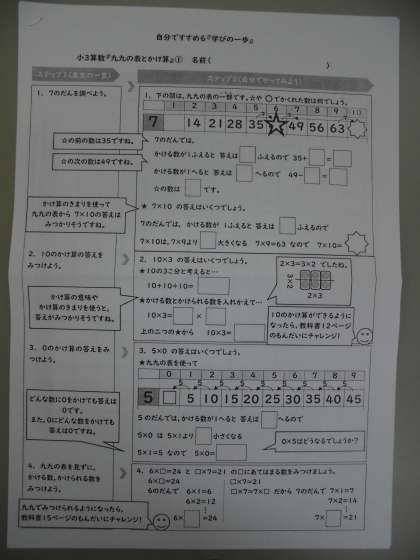 自分ですすめる『学びの一歩』
小3算数『九九の表とかけ算』① 名前( )
ステップ2(自分でやってみよう)
1. 7のだんを調べよう。
☆の前の数は35ですね。
☆の次の数は49ですね。
かけ算のきまりを使って
九九の表から 7×10の答えは
みつかりそうですね。
2. 10のかけ算の答えを
みつけよう。
かけ算の意味や
かけ算のきまりを使うと、
答えがみつかりそうですね。
3. 0のかけ算の答えをみ
つけよう。
どんな数に0をかけても答えは
0です。
また、0にどんな数をかけても
答えは0ですね。
4. 九九の表を見ずに、
かける数、かけられる数を
みつけよう。
九九でみつけられるようになったら、
教科書15ページのもんだいにチャレンジ!
1. 下の図は、九九の表の一部です。☆や○でかくれた数は何でしょう。
1 2 3 4 5 6 7 8 9 10
7 14 21 28 35 49 56 63
7のだんでは、
かける数が1ふえると 答えは□ふえるので 35+□=□
かける数が1へると 答えは□へるので 49-□=□
☆の数は□です。
★ 7×10 の答えはいくつでしょう。
7のだんでは、かける数が 1ふえると 答えは□ふえるので
7×10は、7×9より□大きくなる 7×9=63 なので 7×10=
2. 10×3 の答えはいくつでしょう。
★10の3こ分と考えると…
10+10+10=□
★かける数とかけられる数を入れかえて…
10×3=□×□
上の二つの★から 10×3=□
2×3=3×2 でしたね。
3×2
2×3
10のかけ算ができるように
なったら、教科書12ページ
のもんだいにチャレンジ!
3. 5×0 の答えはいくつでしょう。
★九九の表を使って
0 1 2 3 4 5 6 7 8 9
5 □ 5 10 15 20 25 30 35 40 45
5のだんでは、かける数が1へると 答えは□へるので
5×0 は 5×1より□小さくなる
5×1=5 なので 5×0=□
0×5はどうなるでしょうか?
4. 6×□=24 と □×7=21 の□にあてはまる数をみつけましょう。
6×□=24 □×7=21
6のだんで 6×1=6 □×7=7×□ だから 7のだんで 7×1=7
6×2=12 7×2=14
6×□=24 7×□=21